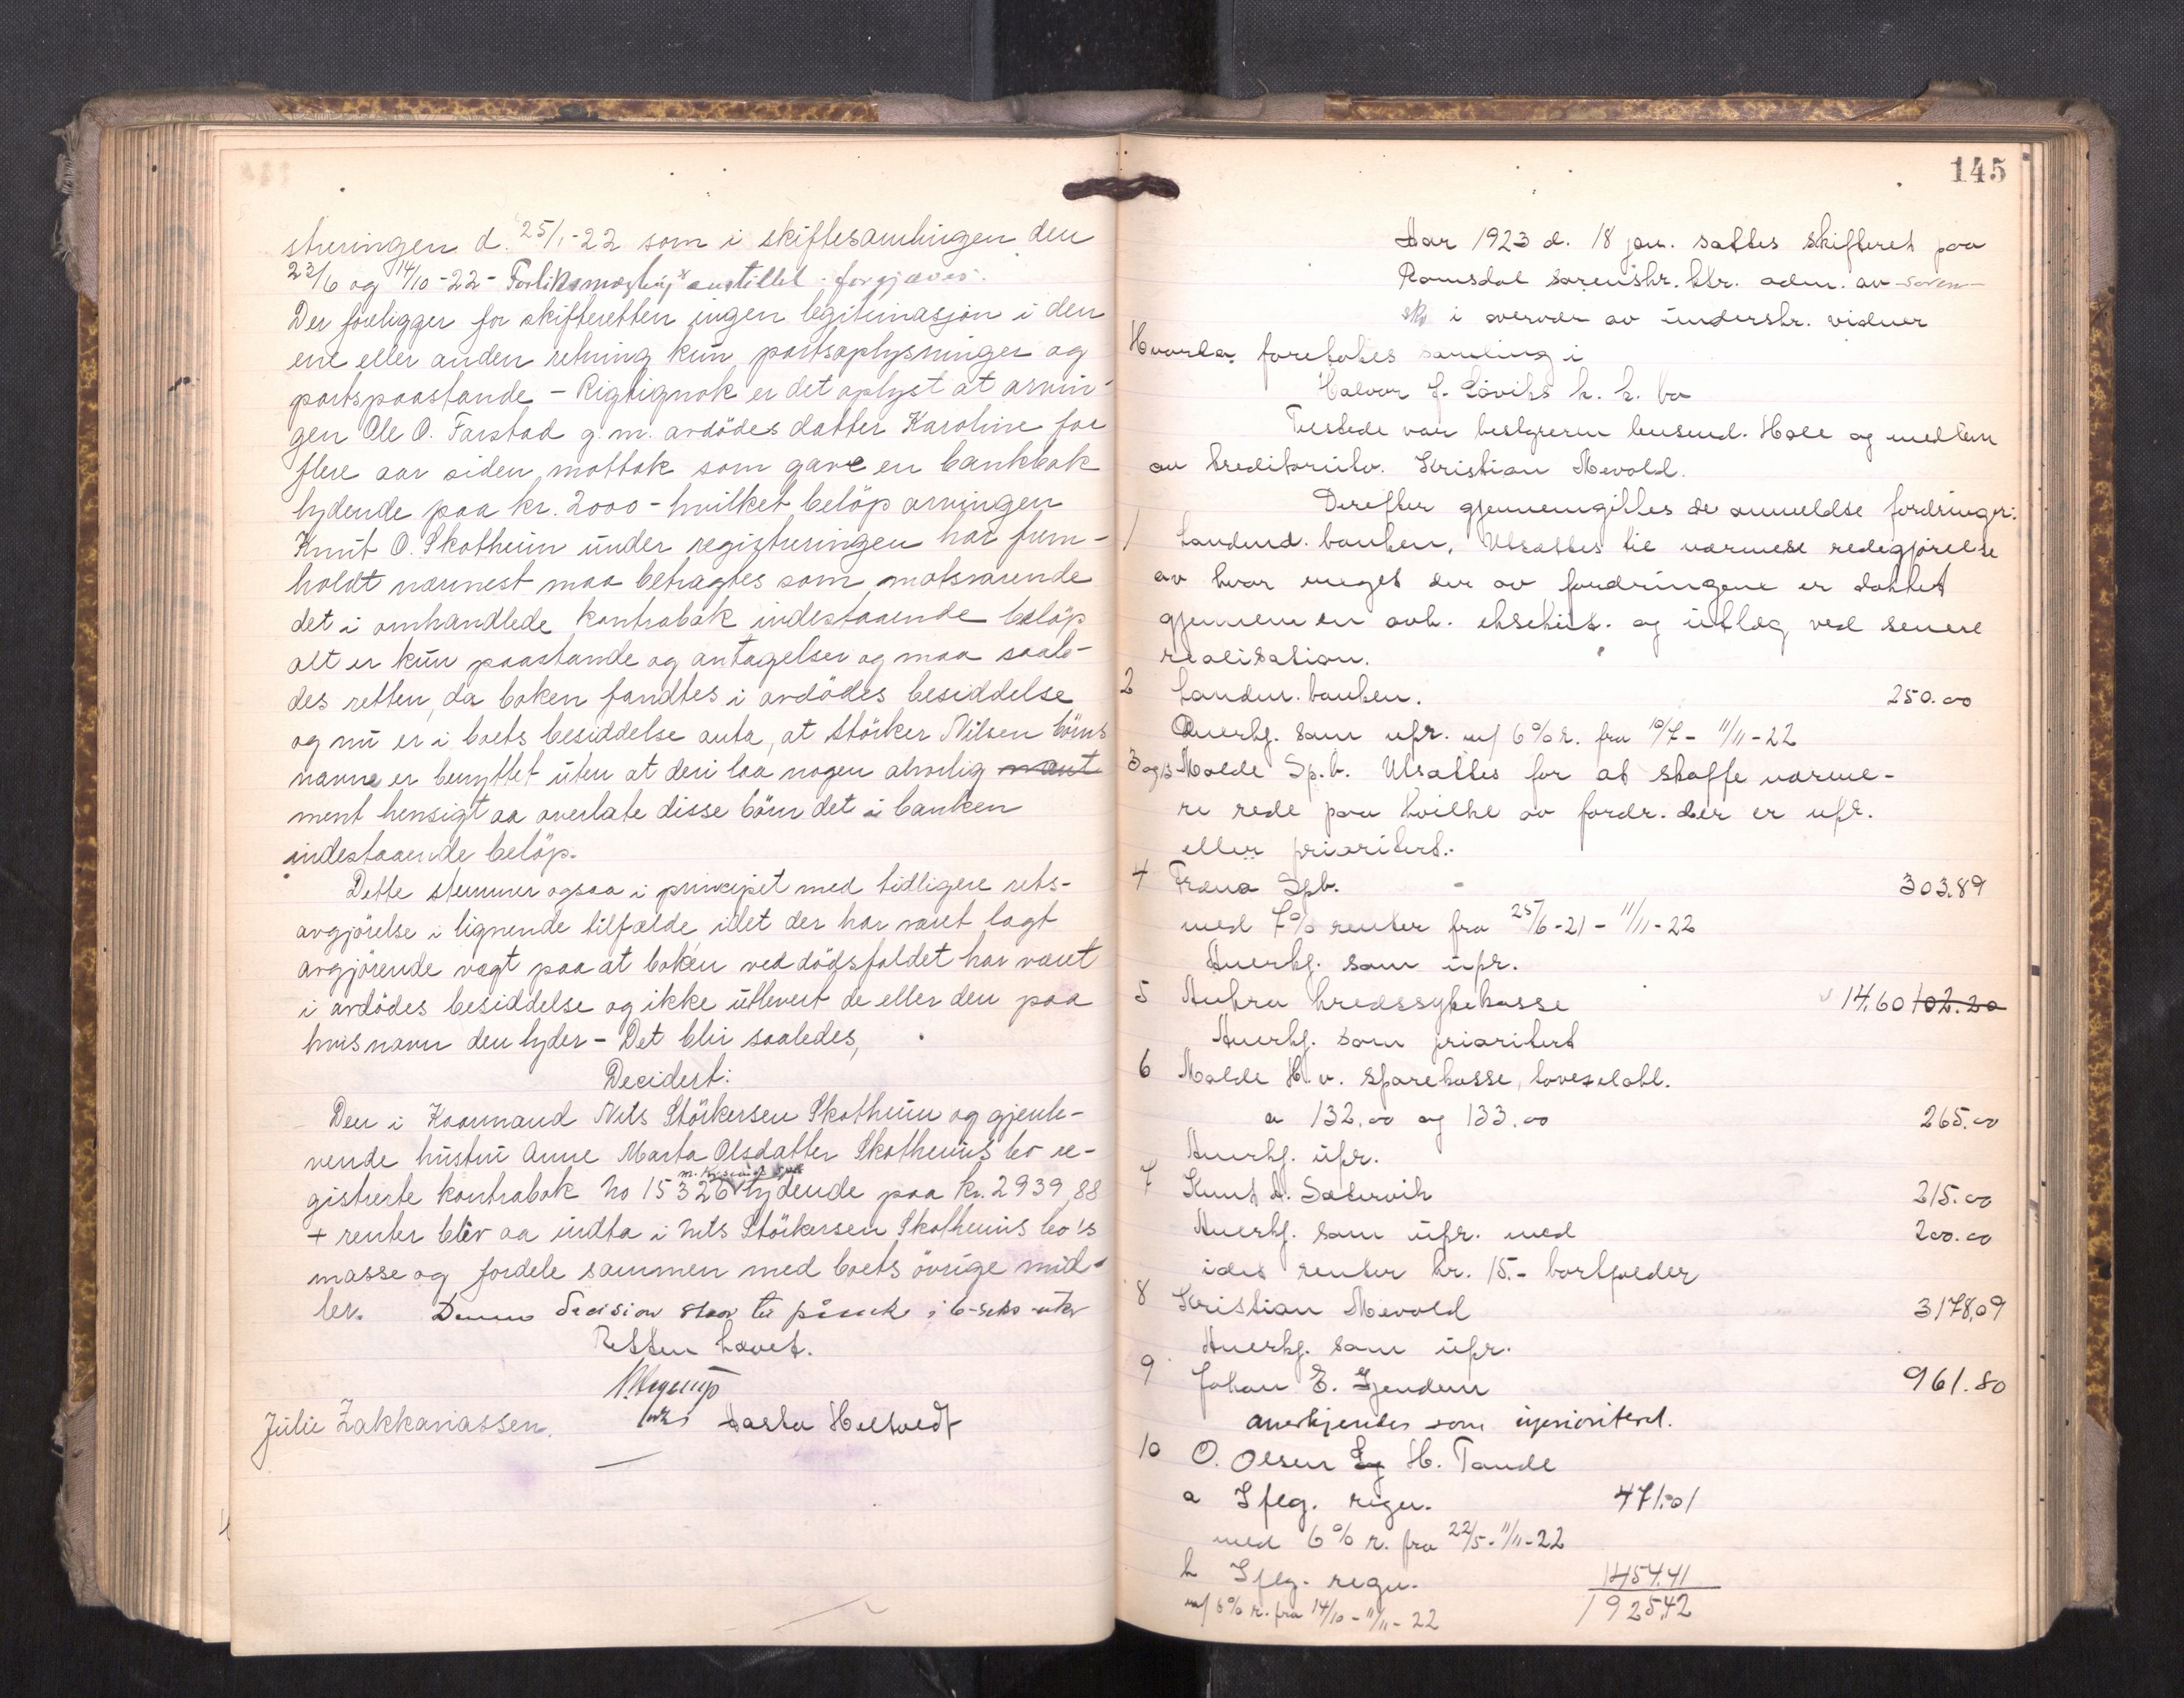 streringen d. 25/1-22 som i skiftesamlingen den
23/6 og 14/10-22 - Forliksmægling anstillet forgjæves.
Der foreligger for skifteretten ingen legitimasjon i den
ene eller anden retning kun partsoplysninger og
partspaastande - Rigtignok er det oplyst at arvin-
gen Ole O. Farstad g. m. avdødes datter Karoline for
flere aar siden mottok som gave en bankbok
lydende paa kr. 2000 - hvilket beløp arvingen
Knut O. Skotheim under registreringen har frem-
holdt nærmest maa betragtes som motsvarende
det i omhandlede kontrabok indestaaende beløp
alt er kun paastande og antagelser og maa saale-
des retten, da boken fandtes i avdødes besiddelse
og nu er i boets besiddelse anta, at Störker Nilsen børns
navne er benyttet uten at deri laa nogen alvorlig
ment hensigt aa overlate disse børn det i banken
indestaaende beløp.
Dette stemmer ogsaa i principet med tidligere rets-
avgjørelse i lignende tilfælde, idet der har været lagt
avgjørende vegt paa at boken ved dødsfaldet har været
i avdødes besiddelse og ikke utlevert de eller den paa
hvis navn den lyder - Det blir saaledes,
Decidert:
Den i Kaarmand Nils Störkersen Skotheim og gjenle-
vende hustru Anne Marta Olsdatter Skotheims bo re-
gistrerte kontrabok No 15326 lydende paa kr. 2939,88
+ renter blir aa indta i Nils Störkersen Skotheims bo's
masse og fordele sammen med boets øvrige mid-
ler. Denne decision staar til påanke i 6-seks-uker
Retten hævet.
Julie Zakkariassen. Aasta Heltvedt
145
Aar 1923 d. 18 jan. sattes skifteret paa
Romsdal sorenskr. ktr. adm. av soren-
skr i overvær av underskr. vidner
Hvorda foretokes samling i
Halvor J. Løviks k. k. bo
Tilstede var bestyreren lensmd. Hole og medlem
av kreditorutv. Kristian Mevold.
Derefter gjennemgikkes de anmeldte fordringer:
1 Landmd. banken, Utsattes til nærmere redegjørelse
av hvor meget der av fordringene er dækket
gjennem en avh. eksekut. og utlæg ved senere
realisation.
2 Landm. banken. 250.00
Anerkj. som upr. m/ 6% r. fra 10/7 - 11/11-22
3 og 13 Molde Sp.b. Utsattes for at skaffe nærme-
re rede paa hvilke av fordr. der er upr.
eller prioritert.-
4 Fræna Spb. 303.89
med 7% renter fra 25/6-21 - 11/11-22
Anerkj. som upr.
5 Aukra kredssykekasse 14,60 102.20
Anerkj. som prioritert
6 Molde H. v. sparekasse,
a 132.00 og 133.00 265.00
Anerkj. upr.
7 Knut A. Sætervik 215.00
Anerkj. som upr. med 200.00
idet renter kr. 15.- bortfalder
8 Kristian Mevold 3178,09
Anerkj. som upr.
9 Johan E. Gjendem 961.80
anerkjendes som uprioritert.
10 O. Olsen Eg H. Tande
a Iflg. regn. 471.01
med 6% r. fra 22/5 - 11/11-22
b Iflg. regn. 1454.41
m/ 6% r. fra 14/10 - 11/11-22 1925.42